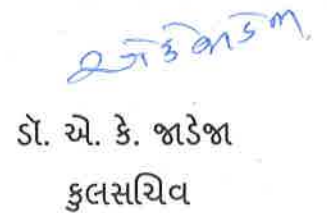 ડૉ. એ. કે. જાડેજા
કુલસચિવ